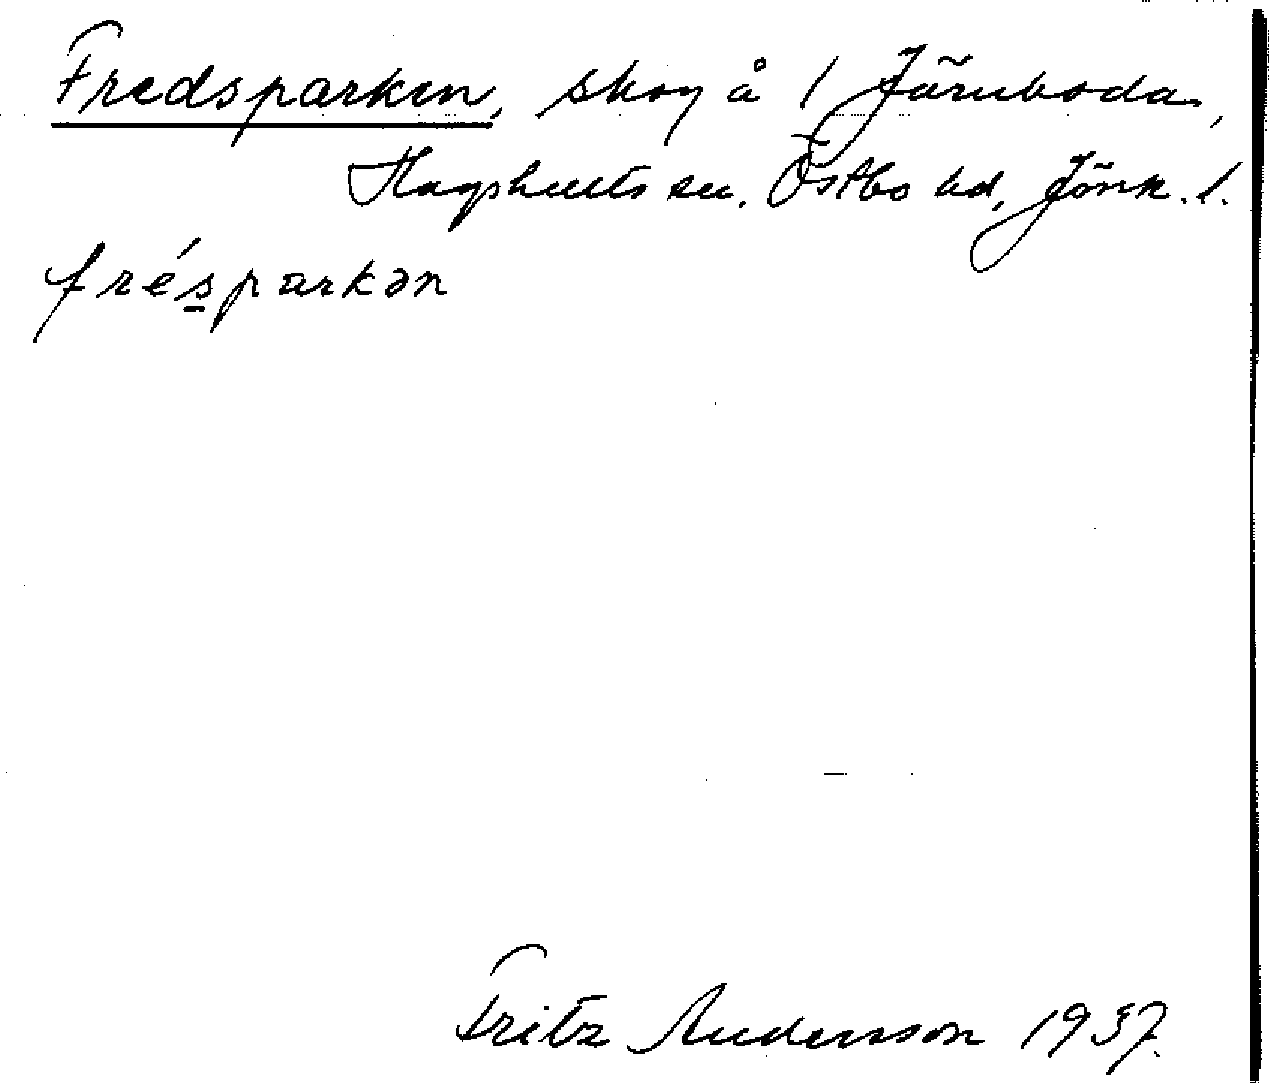 Fredsparken, skog å 1 Järnboda,
Hagshults sn. Östbo hd, Jönk. l.
frésparkən
Fritz Andersson 1937.